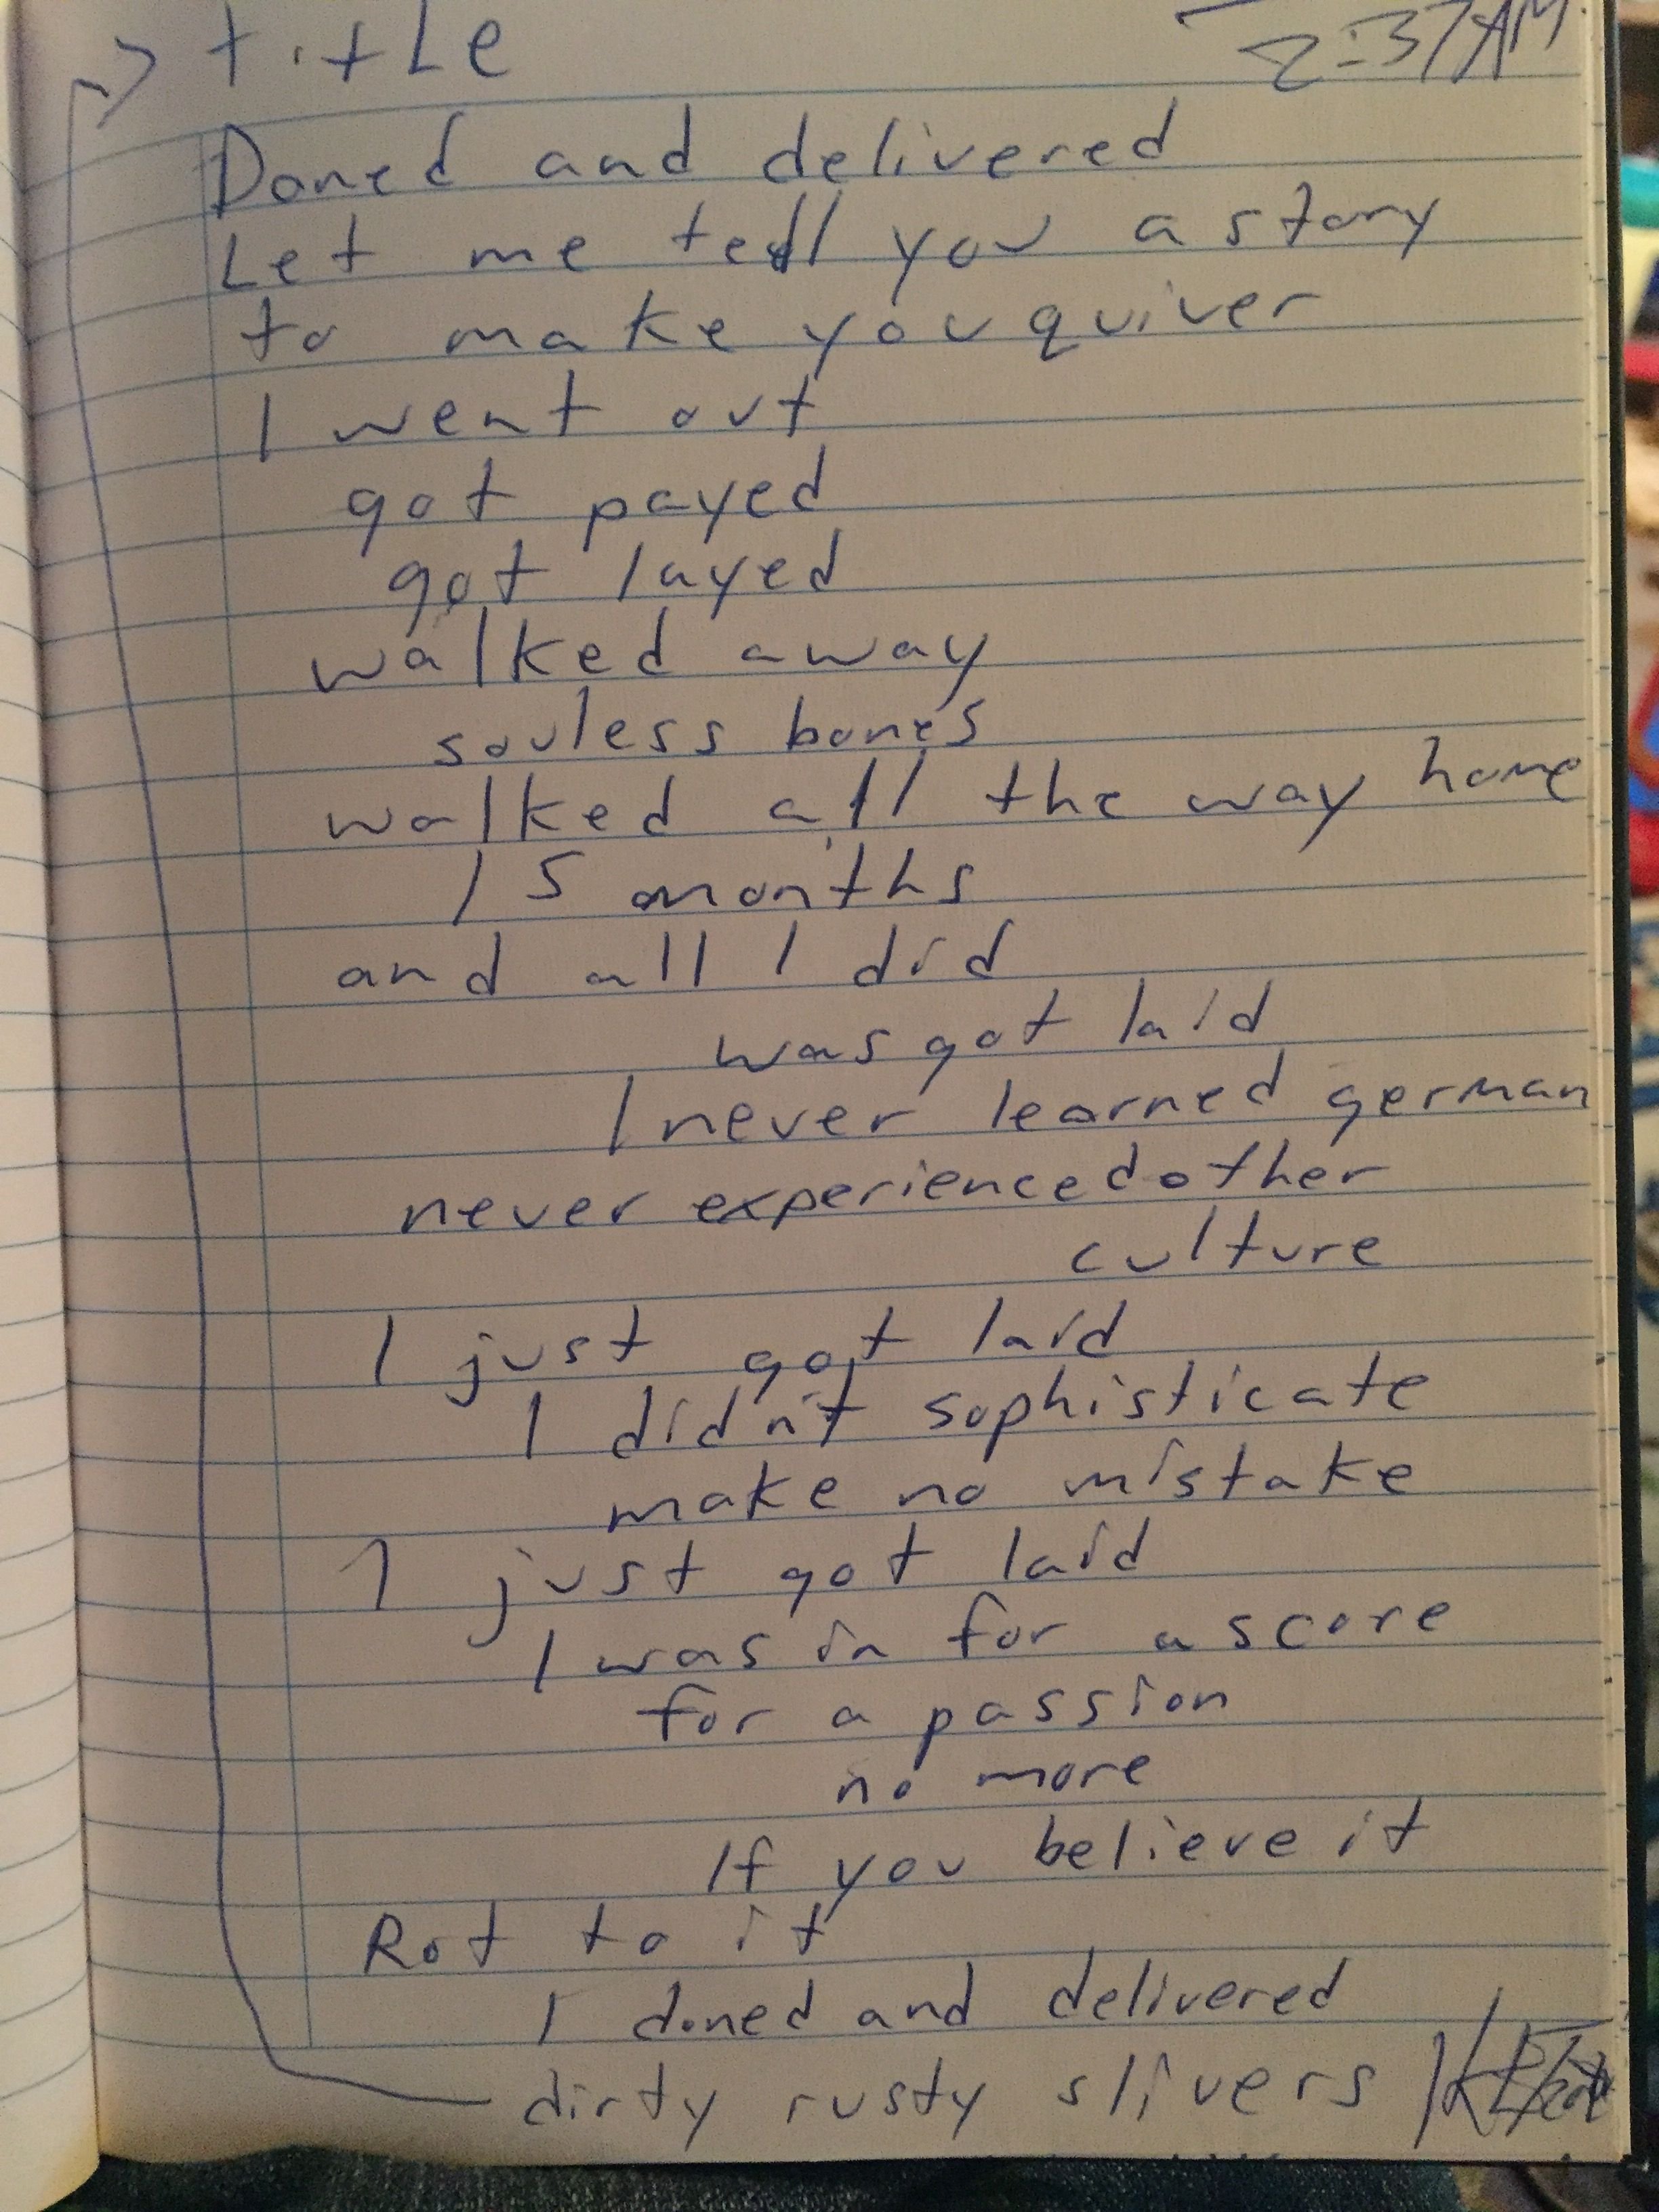 title
2:37 AM
Doned and delivered
Let me tell you a story
to make you quiver
I went out
got payed
got layed
walked away
souless bones
walked all the way home
15 months
and all I did
was got laid
I never learned german
never experienced other
culture
I just got laid
I didn't sophisticate
make no mistake
I just got laid
I was in for a score
for a passion
no more
If you believe it
Rot to it
I doned and delivered
dirty rusty slivers